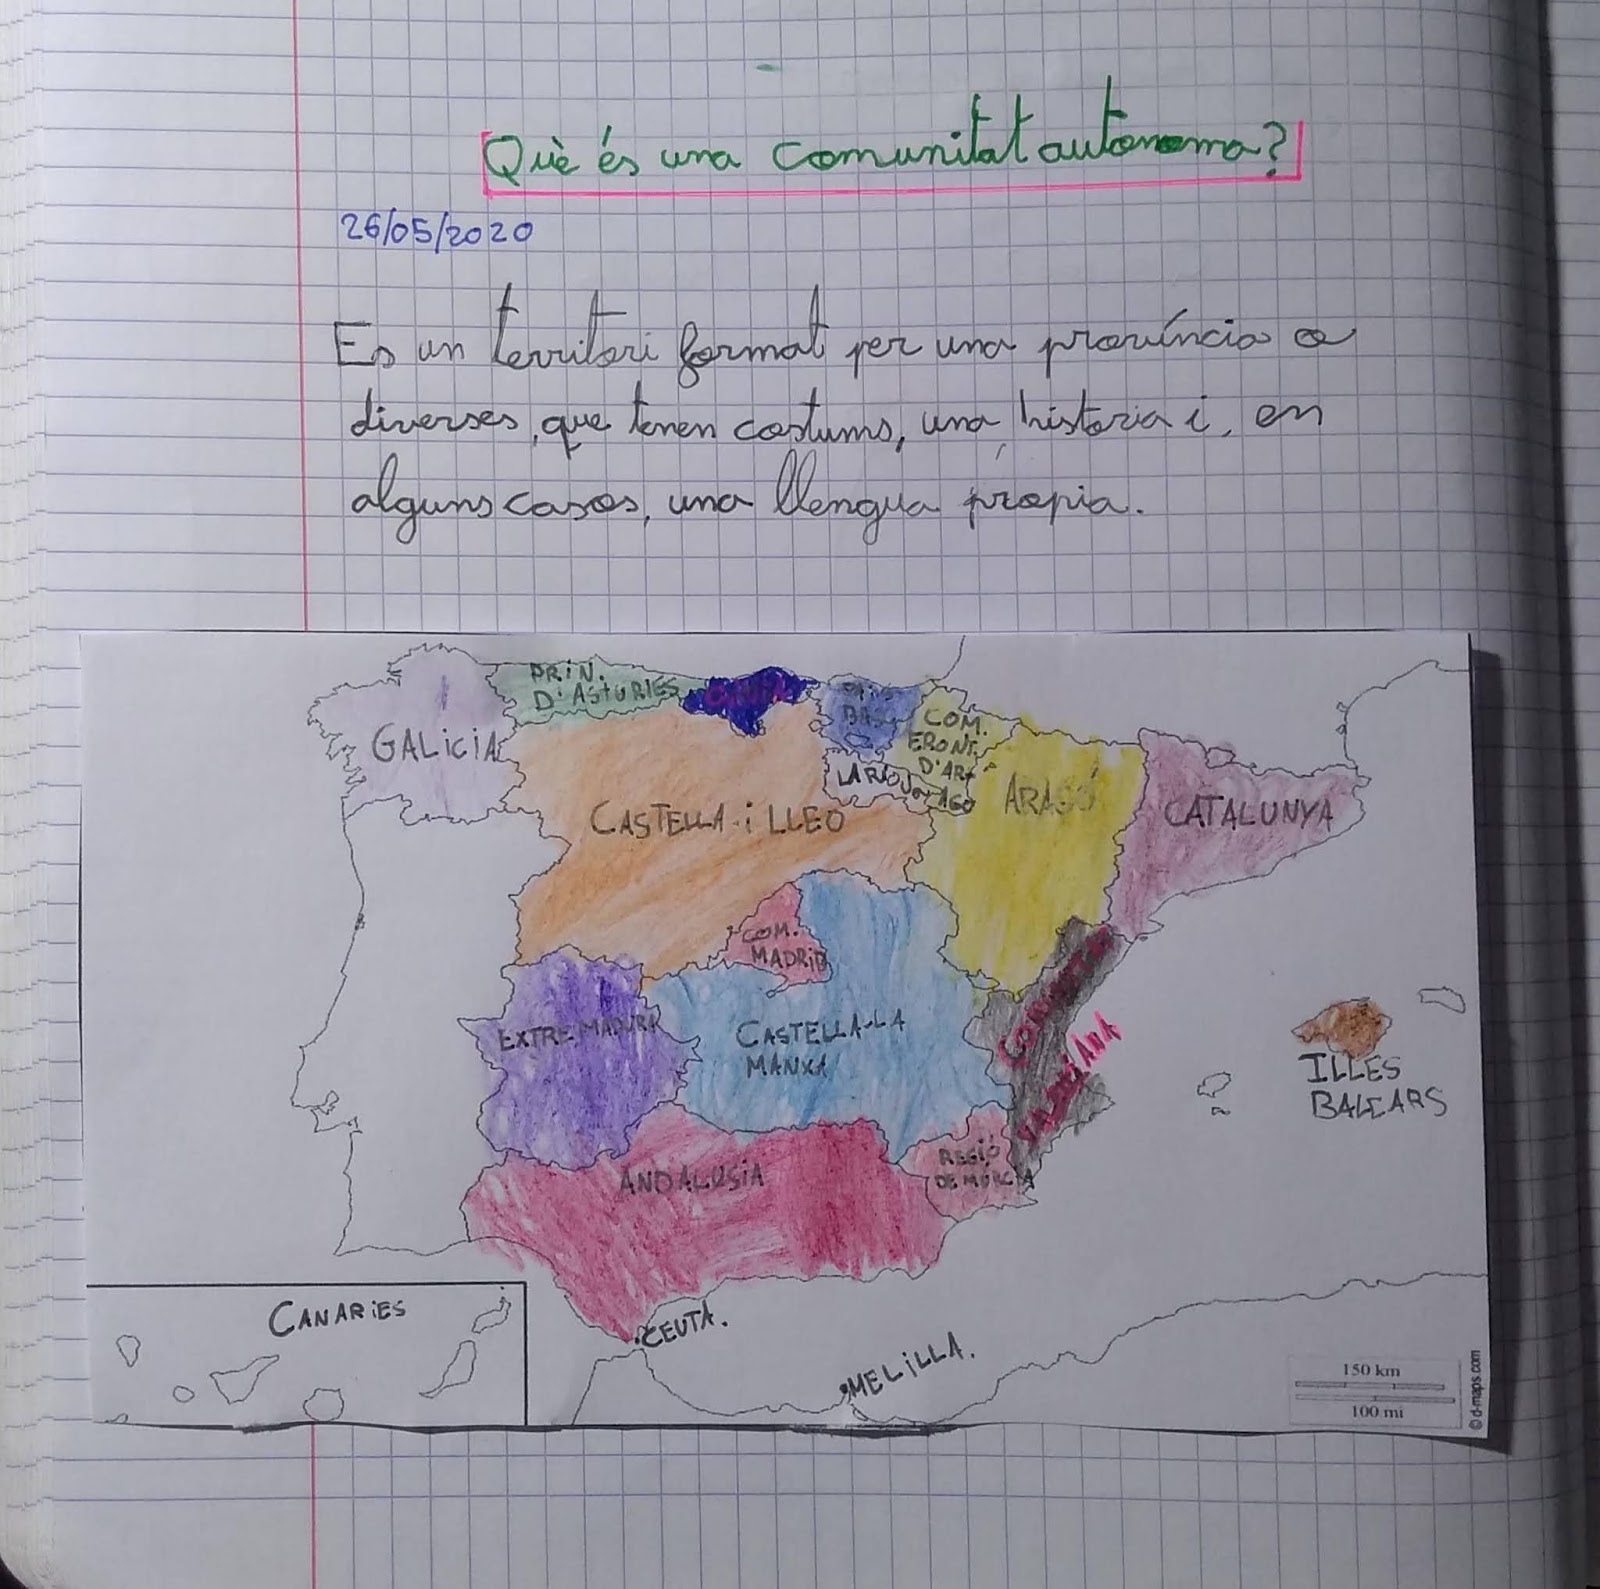 Què és una comunitat autonoma?
26/05/2020
Es un territori format per una província o
diverses, que tenen costums, una història i, en
alguns casos, una llengua pròpia.
PRIN.
D'ASTURIES
GALICIA
PAÍS
BASC
COM.
FRONT.
D'AR
AGÓ
LA RIOJA
ARAGÓ
CATALUNYA
CASTELLA i LLEO
COM.
MADRID
EXTREMADURA
CASTELLA-LA
MANXA
COMUNITAT
VALENCIANA
ILLES
BALEARS
ANDALUSIA
REGIÓ
DE MÚRCIA
CANARIES
CEUTA.
MELILLA.
150 km
100 mi
© d-maps.com